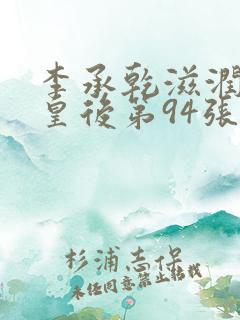 李承乾滋潤
皇後第94張
杉浦志保
未經同意禁止轉載